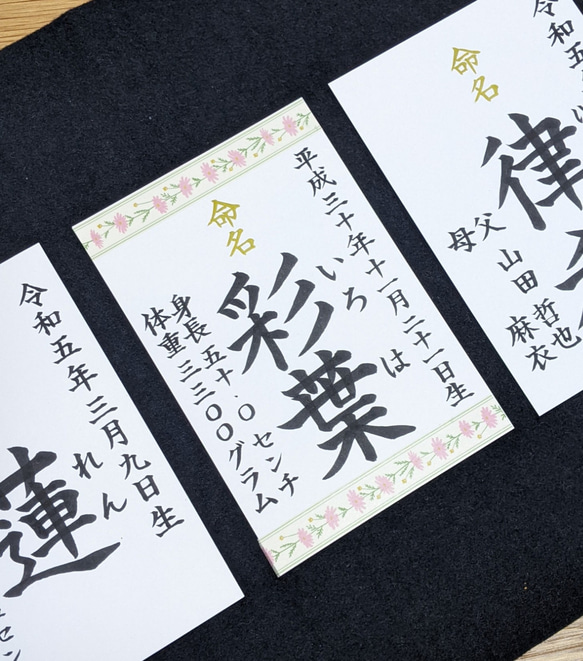 令和五
命名
律
父 山田 哲也
母 麻衣
平成三十年十一月二十一日生
命名
いろは
彩葉
身長 五十.〇センチ
体重 三三〇〇グラム
令和五年三月九日生
れん
蓮
セン